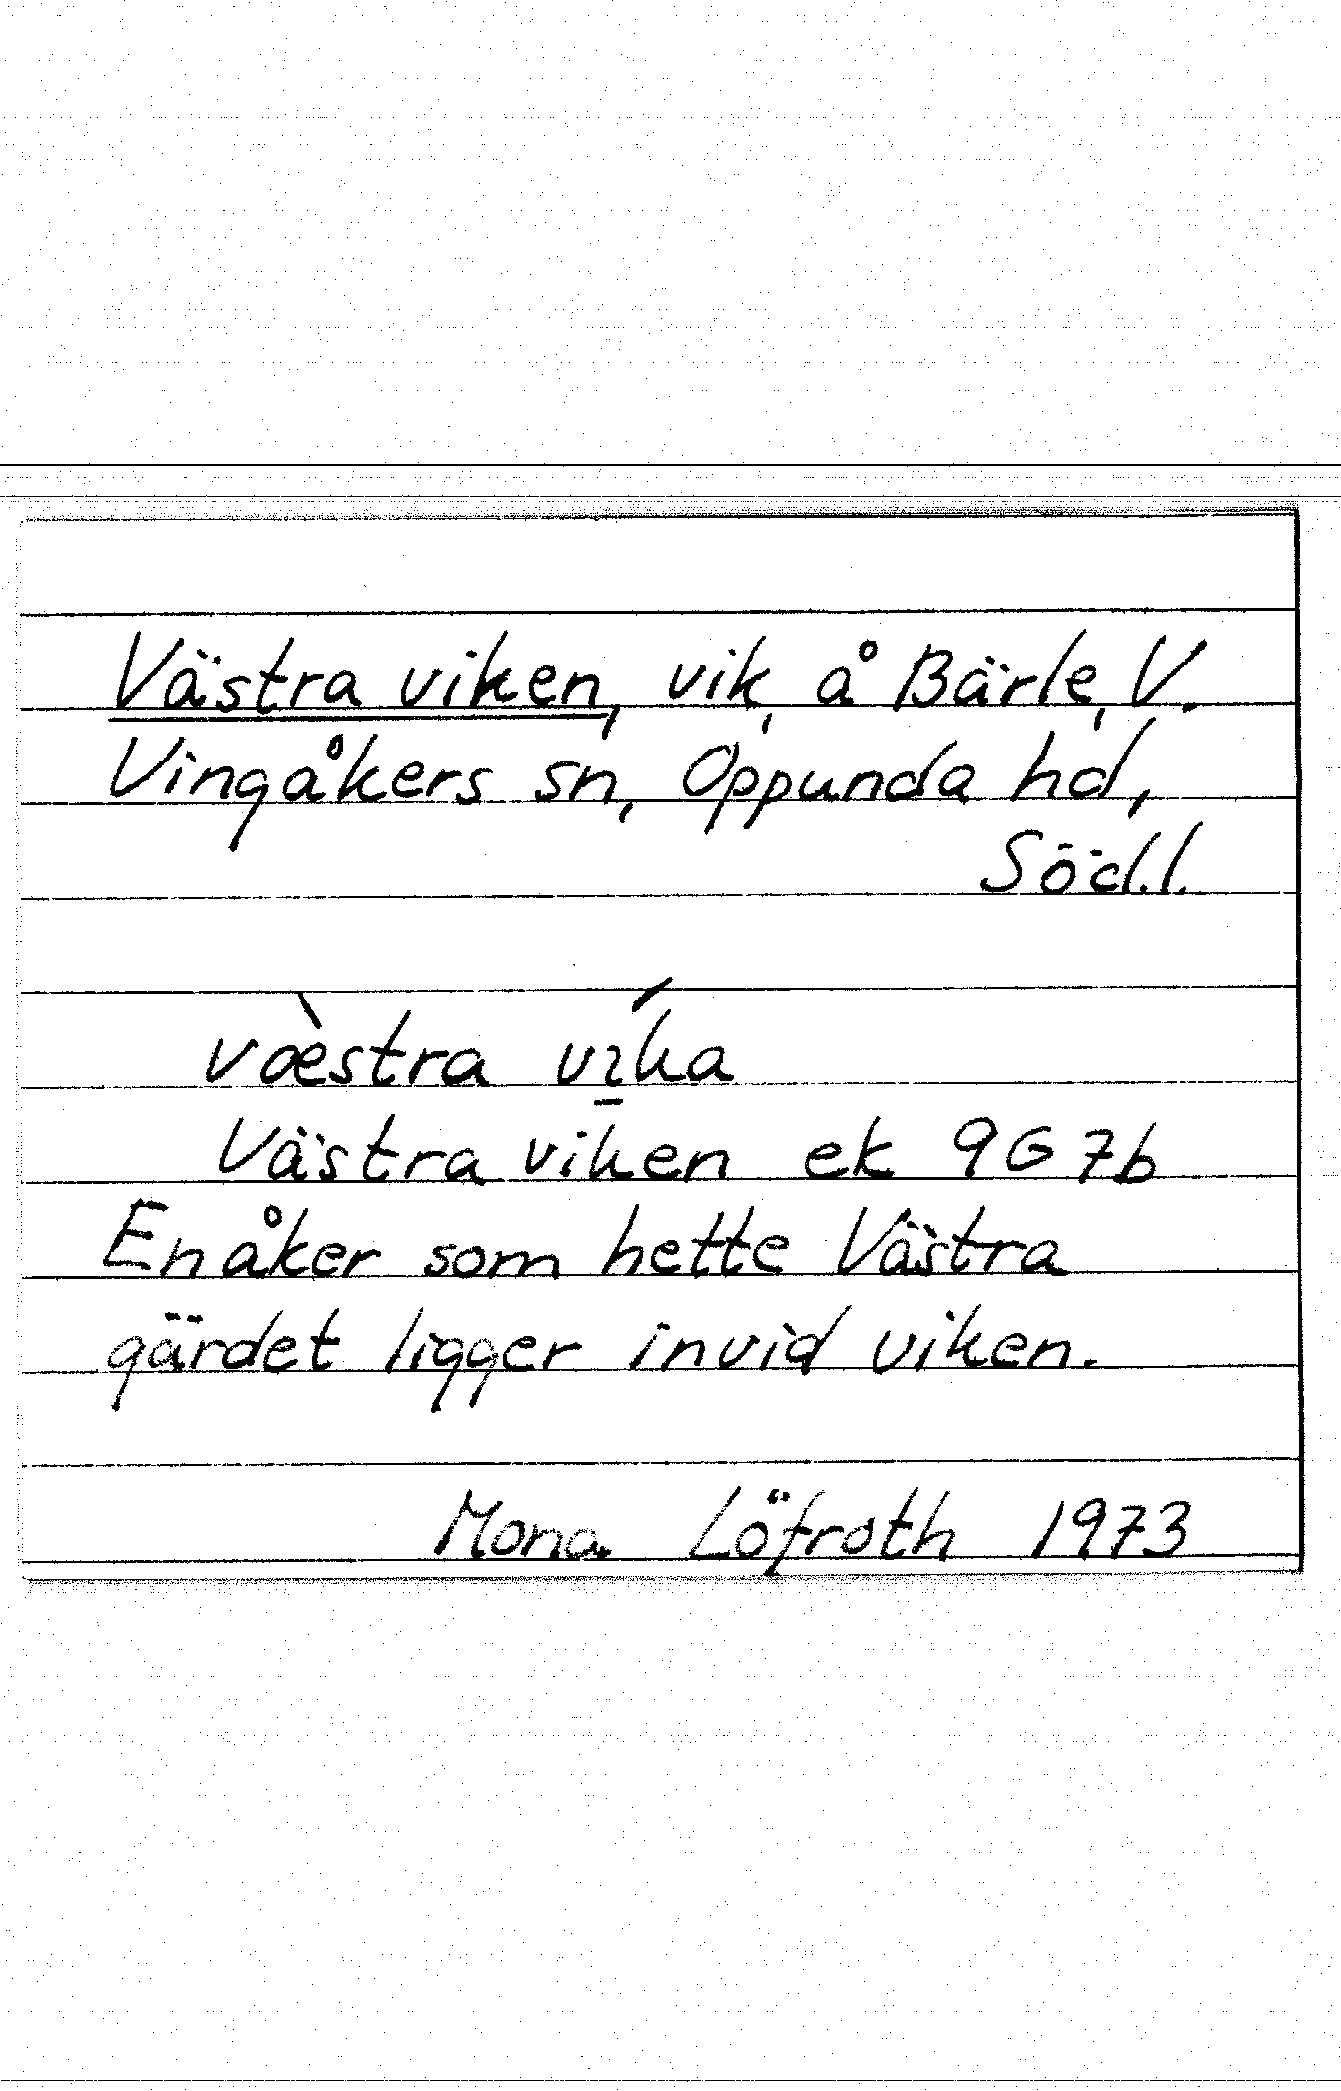 Västra viken, vik, å Bärle, V.
Vingåkers sn, Oppunda hd,
Söd.l.
væ̀stra vı̱́ka
Västra viken ek 9G7b
En åker som hette Västra
gärdet ligger invid viken.
Mona Löfroth 1973